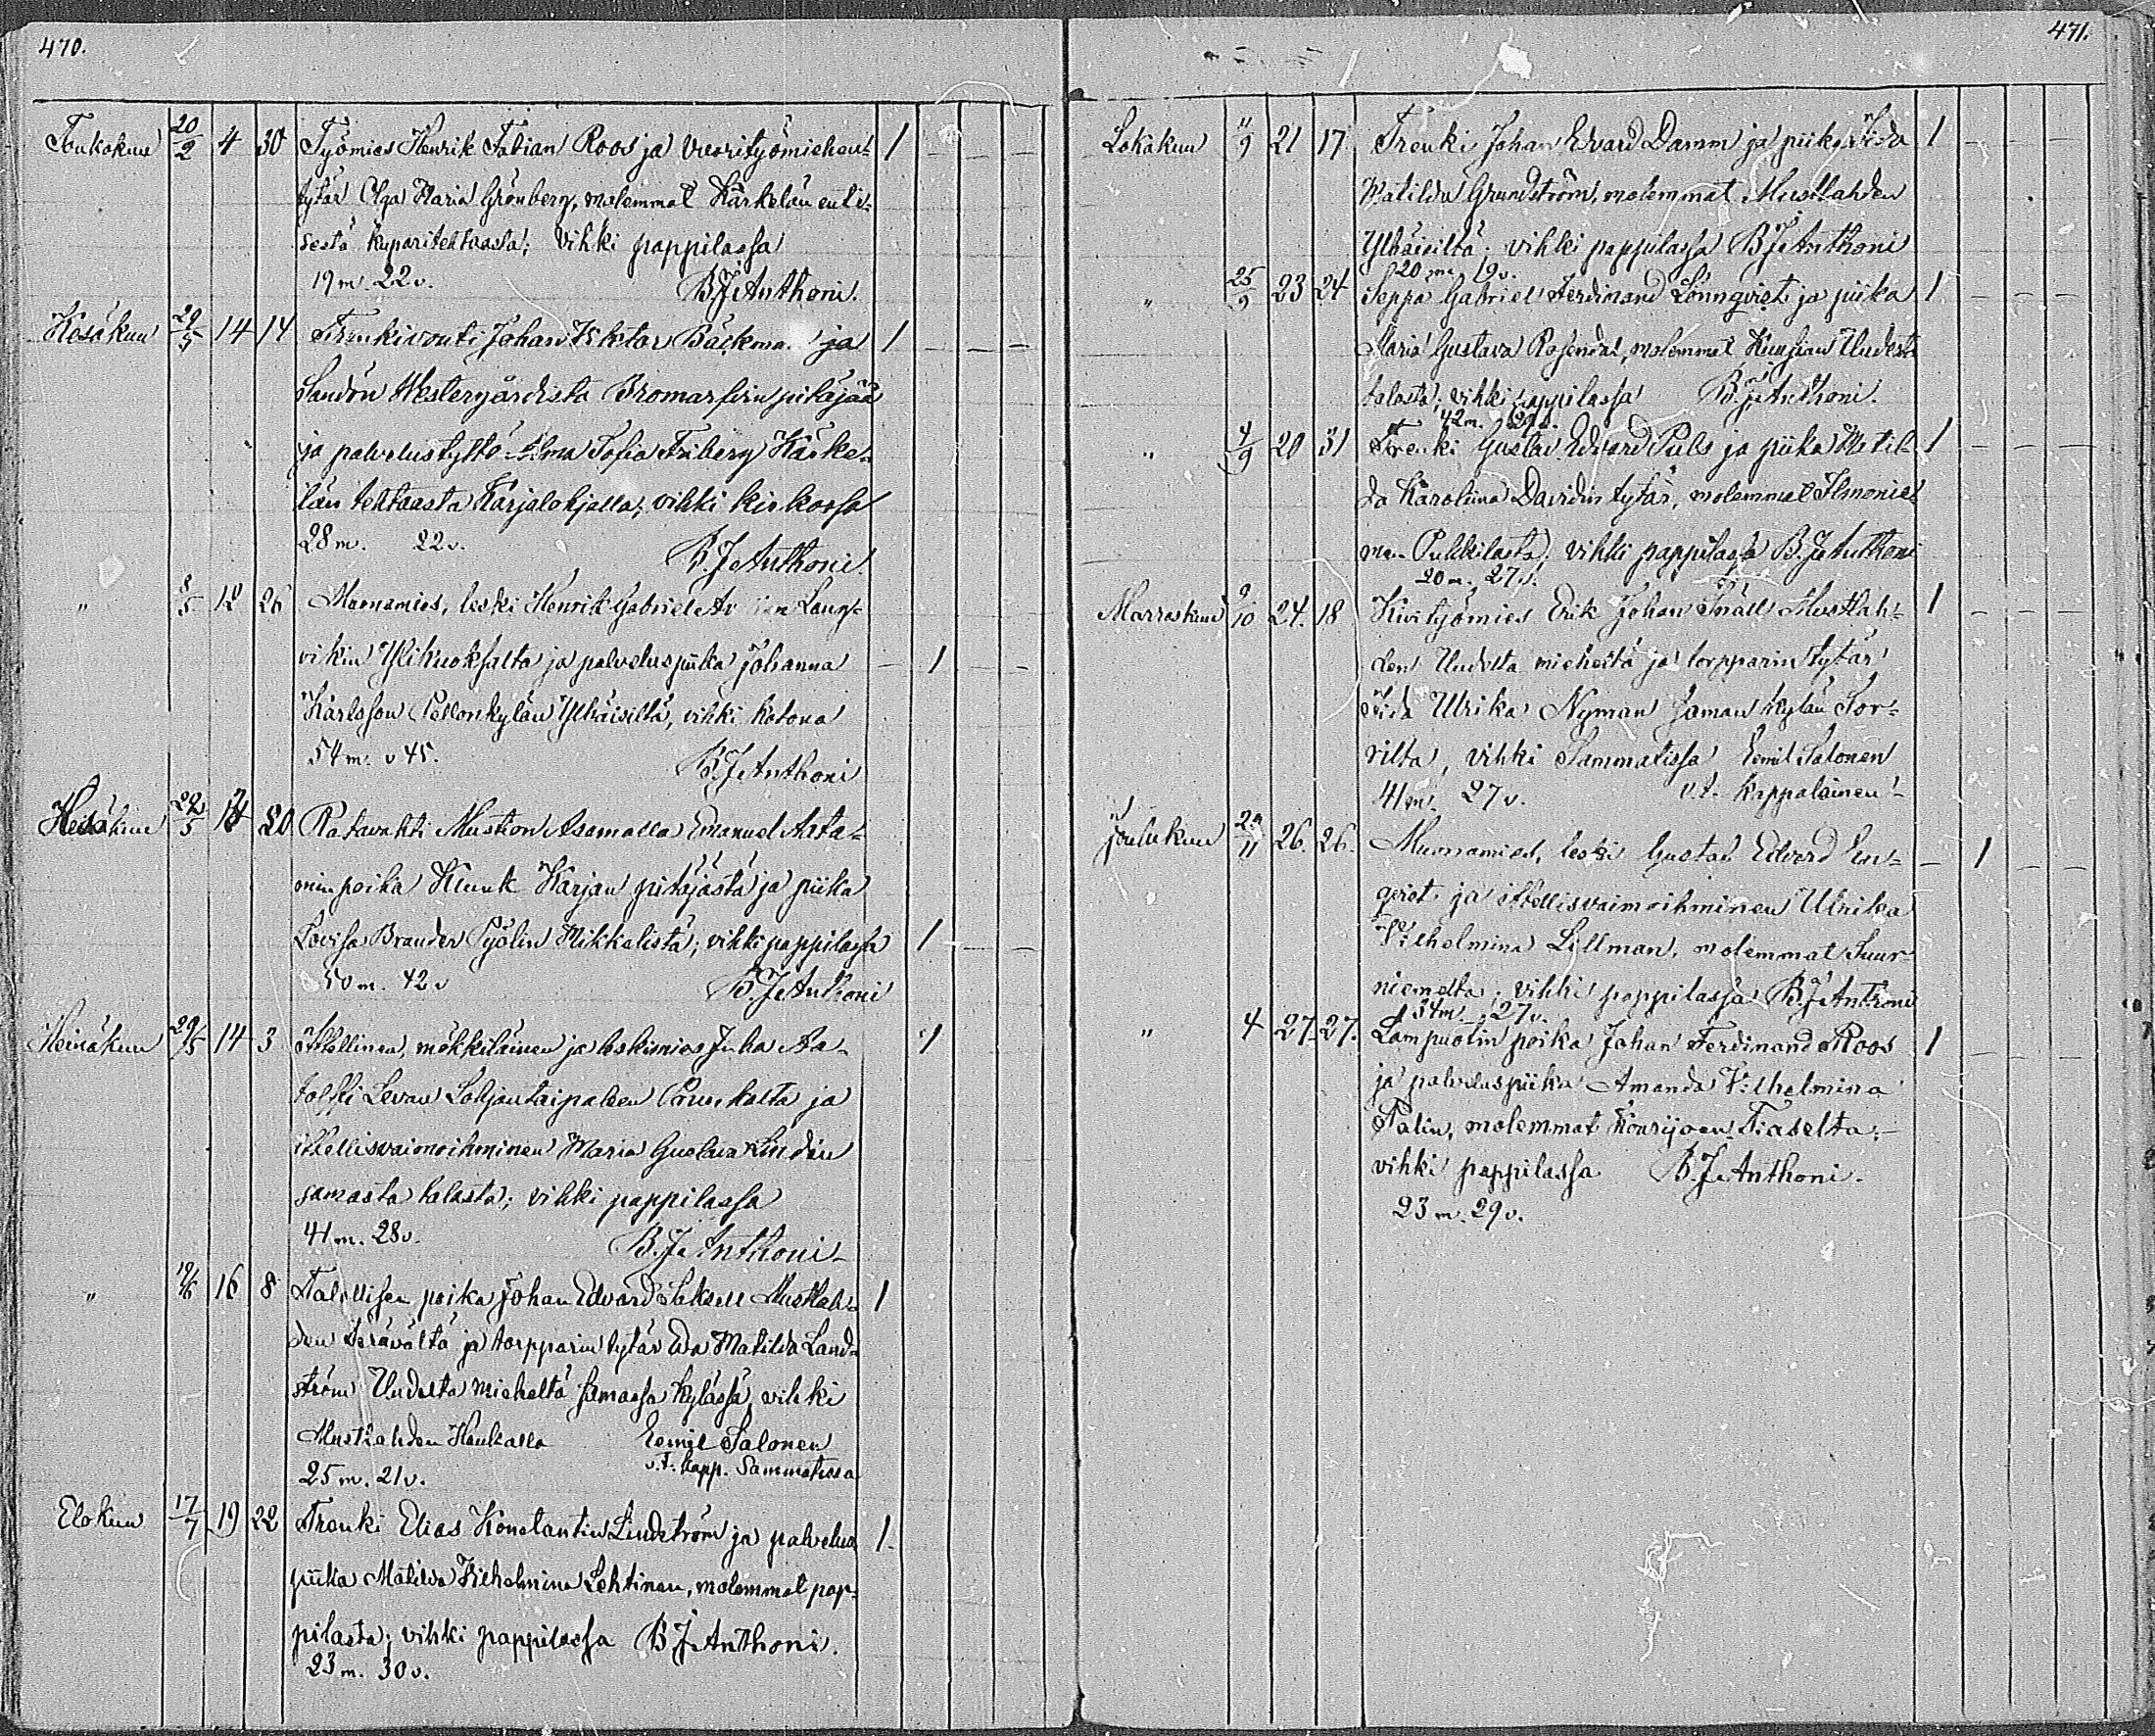 470.
Toukokuu 20/2 4 30 Työmies Henrik Fabian Roos ja vuorityömiehen- 1 - - -
tytär Olga Maria Grönberg, molemmat Kärkelän enti-
sestä kuparitehtaasta; vihki pappilassa
19 m. 22 v. B.J. Anthoni.
Kesäkuu 29/5 14 14 Trenkivouti Johan Viktor Bäckma ja 1 - - -
Sandön Westergårdista Bromarfvin pitäjää
ja palvelustyttö Alma Sofia Friberg Kärke-
län tehtaasta Karjalohjalla; vihki kirkossa
28 m. 22 v. B.J. Anthoni
" 8/5 12 26 Muonamies, leski Henrik Gabriel Lång-
vikin Ylikuoksalta ja palveluspiika Johanna - 1 - -
Karlsson Pellonkylän Ylhäisiltä, vihki kotona
54 m. v 45. B.J. Anthoni
Kesäkuu 22/5 13 20 Ratavahti Mustion Asemalla Emanuel Aata-
minpoika Kuuk Karjan pitäjästä ja piika
Lovisa Brander Pyölin Mikkalista; vihki pappilassa 1 - -
50 m. 42 v B.J. Anthoni
Heinäkuu 29/5 14 3 Itsellinen, mökkiläinen ja leskimies Juha Aa- 1
tolffi Levan Lohjantaipaleen Prunkalta ja
itsellisvaimoihminen Maria Gustava Lindén
samasta talosta; vihki pappilassa
41 m. 28 v. B.J. Anthoni
" 19/6 16 8 Talollisen poika Johan Edvard Saksell Mustlah- 1
den Terävältä ja torpparin tytär Eva Matilda Land-
ström Uudelta mieheltä samassa kylässä, vihki
Mustlahden Haukalla Eemil Salonen
25 m. 21 v. v.t. kapp. Sammatissa
Elokuu 17/7 19 22 Trenki Elias Konstantin Lindström ja palvelus 1.
piika Matilda Vilhelmina Lehtinen, molemmat pap-
pilasta; vihki pappilassa B.J. Anthoni.
23 m. 30 v.
471.
Lokakuu 11/9 21 17 Trenki Johan Edvard Damm ja piika Iida 1 - - -
Matilda Grundström, molemmat Mustlahden
Ylhäisiltä; vihki pappilassa B.J. Anthoni
20 m. 19 v.
" 25/9 23 24 Seppä Gabriel Ferdinand Lönnqvist ja piika 1 - - -
Maria Gustava Rosendal, molemmat Kuusian Uudesta
talosta; vihki pappilassa B.J. Anthoni.
42 m.
" 4/9 20 31 Trenki Gustav Edvard Puls ja piika Matil- 1 - - -
da Karoliina Davidin tytär, molemmat Ilmonie-
men Pulkkilasta; vihki pappilassa B.J. Anthoni
20 m. 27 v.
Marraskuu 9/10 24. 18 Kivityömies Erik Johan Snäll Mustlah- 1 - - -
den Uudelta mieheltä ja torpparin tytär
Iida Ulrika Nyman saman kylän Sor-
vilta, vihki Sammatissa Eemil Salonen
41 m. 27 v. v.t. kappalainen
Joulukuu 20/11 26. 26. Muonamies, leski Gustaf Edvard En- - 1 - -
qvist ja itsellisvaimoihminen Ulrika
Vilhelmina Lillman, molemmat Suur-
niemelta; vihki pappilassa B.J. Anthoni
34 m. 27 v.
" 4 27. 27. Lampuotin poika Johan Ferdinand Roos 1 - - -
ja palveluspiika Amanda Vilhelmina
Palin, molemmat Kourjoen Tiaselta;
vihki pappilassa B.J. Anthoni.
23 m. 29 v.